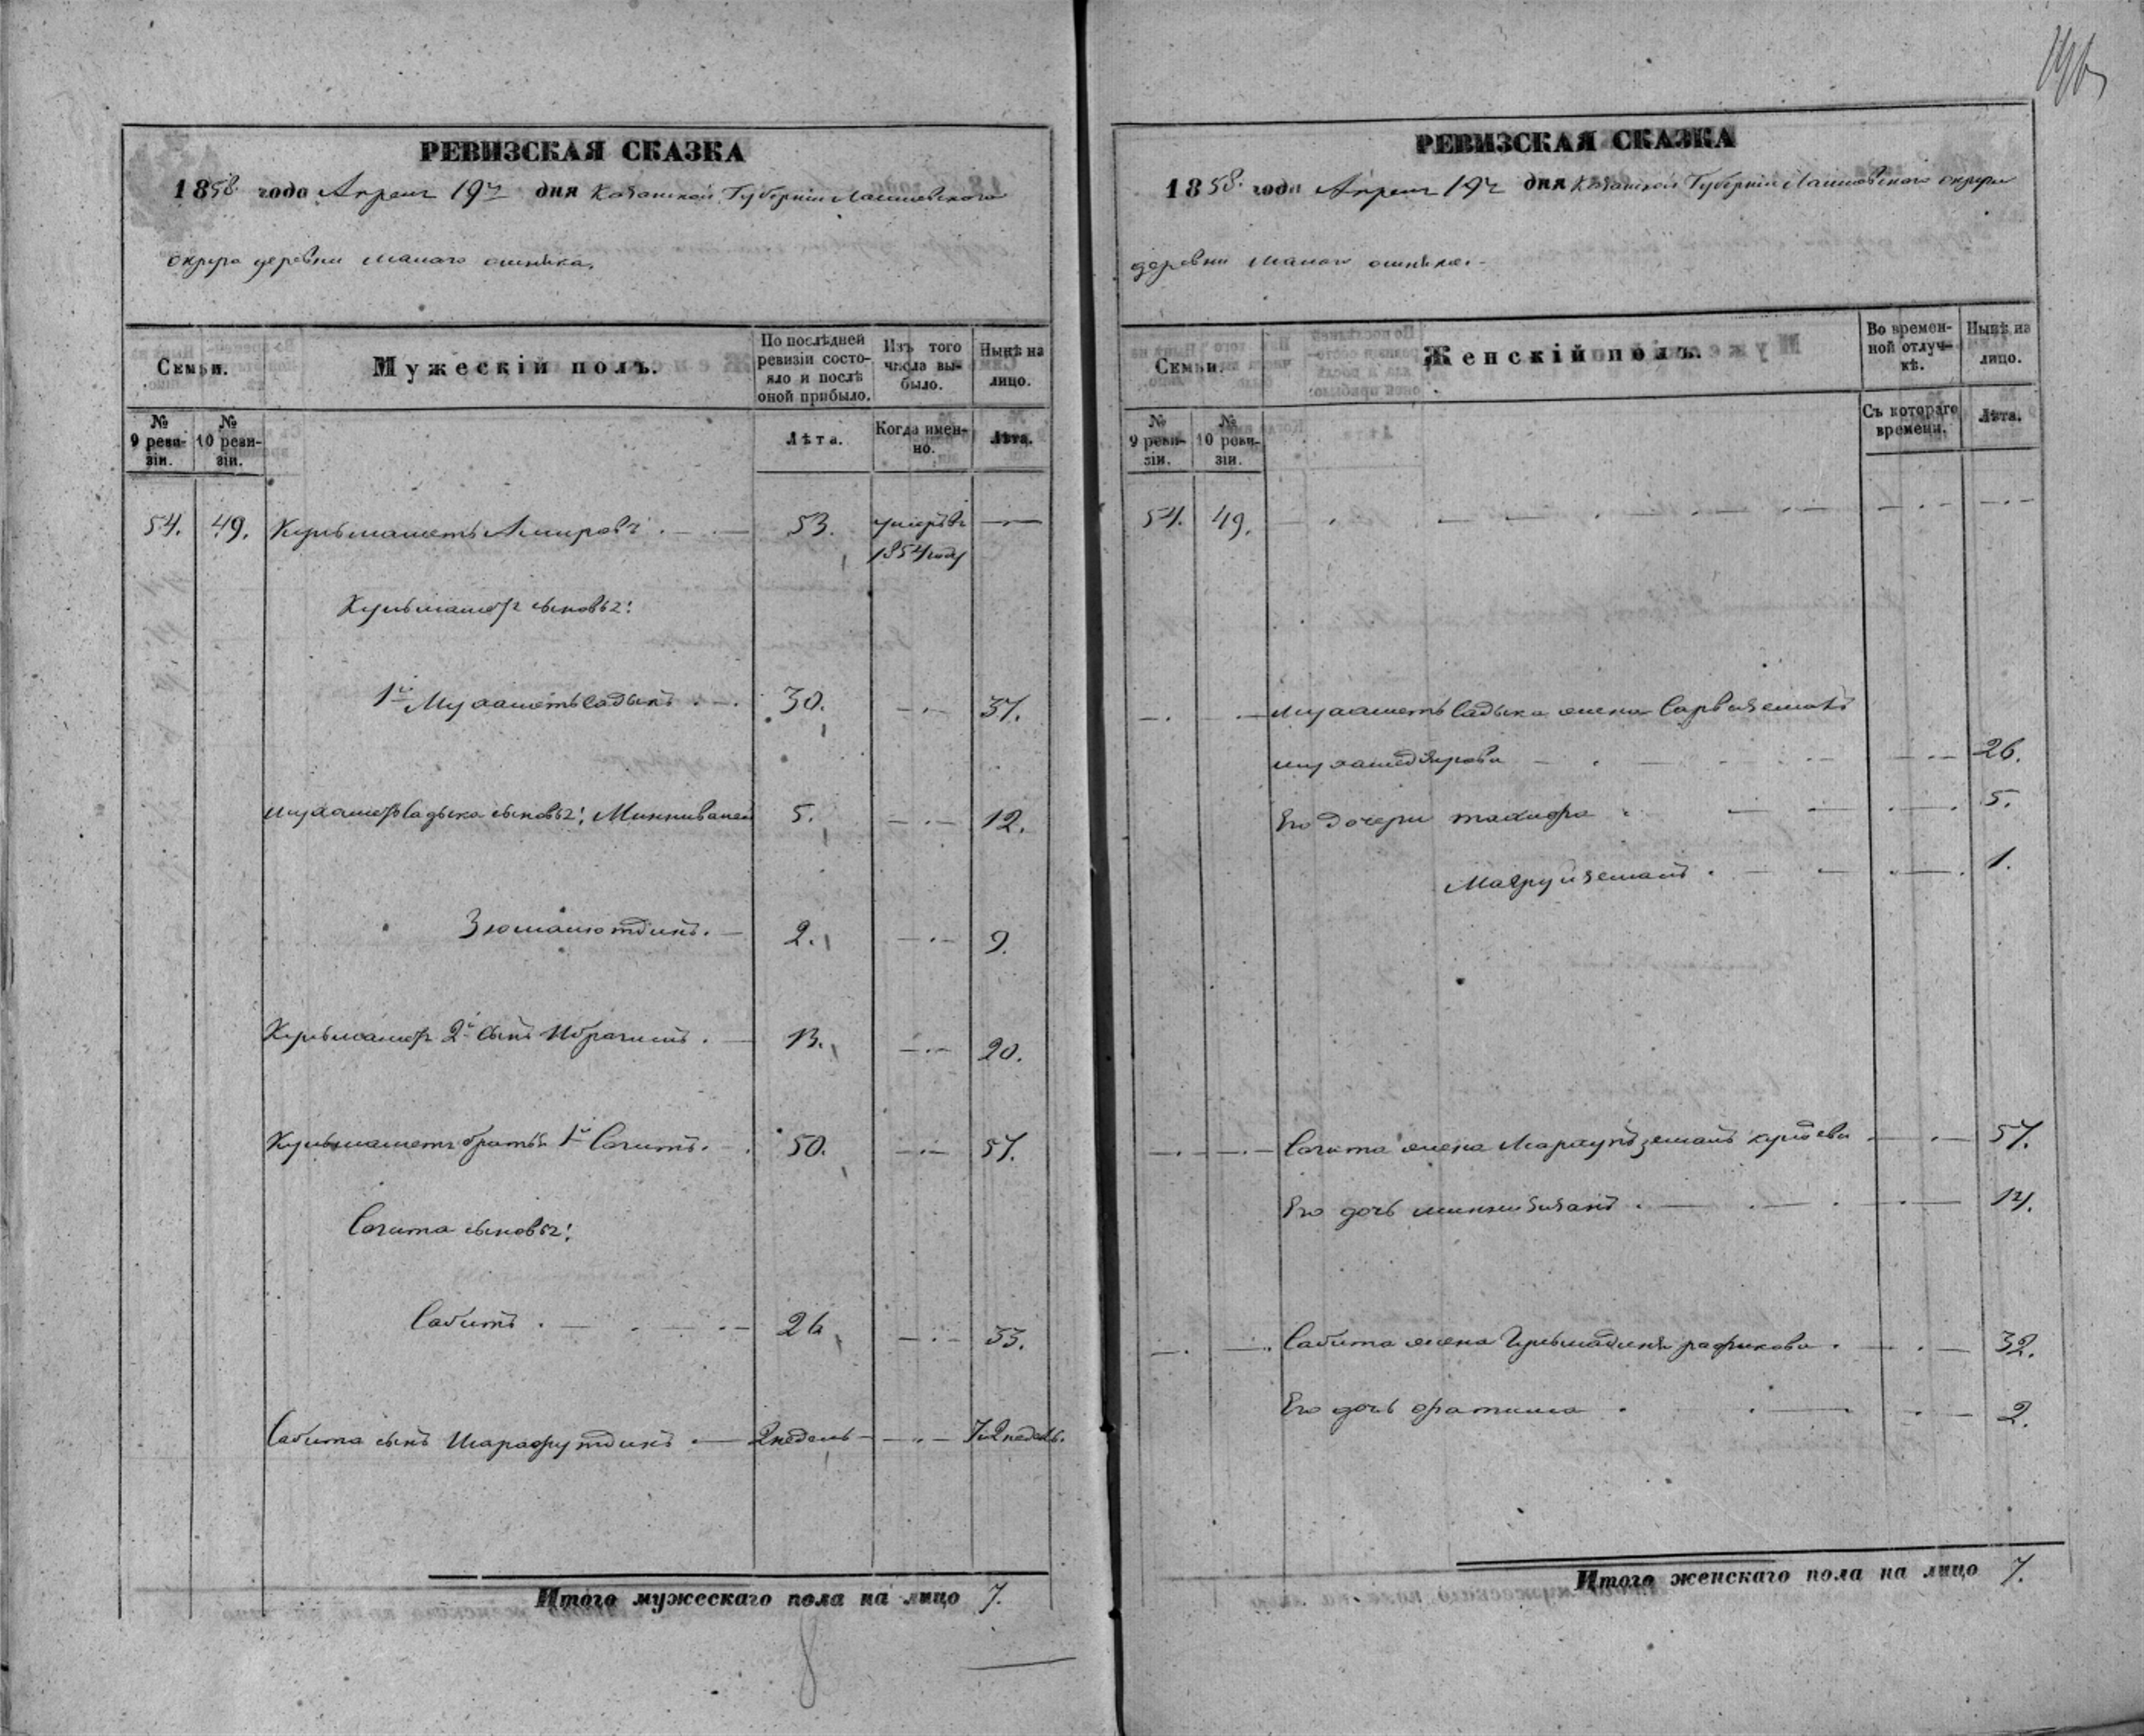 РЕВИЗСКАЯ СКАЗКА
1858 года Апреля 19го дня Казанской Губернiи Лаишевского
округа деревни Малаго
Семьи.
Мужескiй полъ.
По послѣдней ревизiи состояло и послѣ оной прибыло.
Изъ того числа выбыло.
Нынѣ на лицо.
№ 9 ревизiи.
№ 10 ревизiи.
Лѣта.
Когда именно.
Лѣта.
54. 49. Кульмаметь Амировъ 53. умеръ въ
1854 году
Кульмамета сыновья:
1й Мухаметь Садыкъ 30. 37.
Мухамет Садыка сыновья: Миннивалей 5. 12.
2. 9.
Кульмамета 2й сынъ Ибрагимъ 13. 20.
Кульмамета братья 1й Сагитъ 50. 57.
Сагита сыновья:
Сабитъ 26 33.
Сабита сынъ Шарафутдинъ 2 недель 7 и 2 недель.
Итого мужескаго пола на лицо 7.
8
РЕВИЗСКАЯ СКАЗКА
1858 года Апреля 19го дня Казанской Губернiи Лаишевского округа
деревни Малаго
Семьи.
Женскiй полъ.
Во временной отлучкѣ.
Нынѣ на лицо.
№ 9 ревизiи.
№ 10 ревизiи.
Съ котораго времени.
Лѣта.
54. 49.
Мухаметь Садыка жена
26.
Его дочери 5.
1.
Сагита жена 57.
Его дочь 14.
Сабита жена рафикова 32.
Его дочь фатима 2.
Итого женскаго пола на лицо 7.